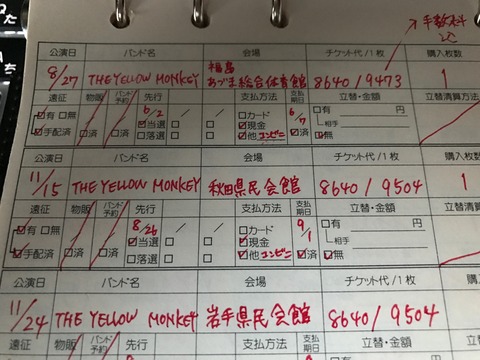 た
ち
手数料
込
公演日 バンド名 会場 チケット代/1枚 購入枚数
8/27 THE YELLOW MONKEY 福島 あづま総合体育館 8640/9473 1
遠征 物販 バンド予約 先行 支払方法 支払期日 立替・金額 立替清算方法
☑有 □無 6/2 / / □カード 6/7 □有 円
☑当選 □ □ ☑現金 └相手
☑手配済 □済 □済 □落選 □ □ ☑他 コンビニ ☑済 ☑無
公演日 バンド名 会場 チケット代/1枚 購入枚数
11/15 THE YELLOW MONKEY 秋田県民会館 8640/9504 1
遠征 物販 バンド予約 先行 支払方法 支払期日 立替・金額 立替清算
☑有 □無 8/26 / / □カード 9/1 □有 円
☑当選 □ □ ☑現金 └相手
☑手配済 □済 □済 □落選 □ □ ☑他 コンビニ ☑済 ☑無
公演日 バンド名 会場 チケット代/1枚 購入
11/24 THE YELLOW MONKEY 岩手県民会館 8640/9504
遠征 物販 バンド予約 先行 支払方法 支払期日 立替・金額